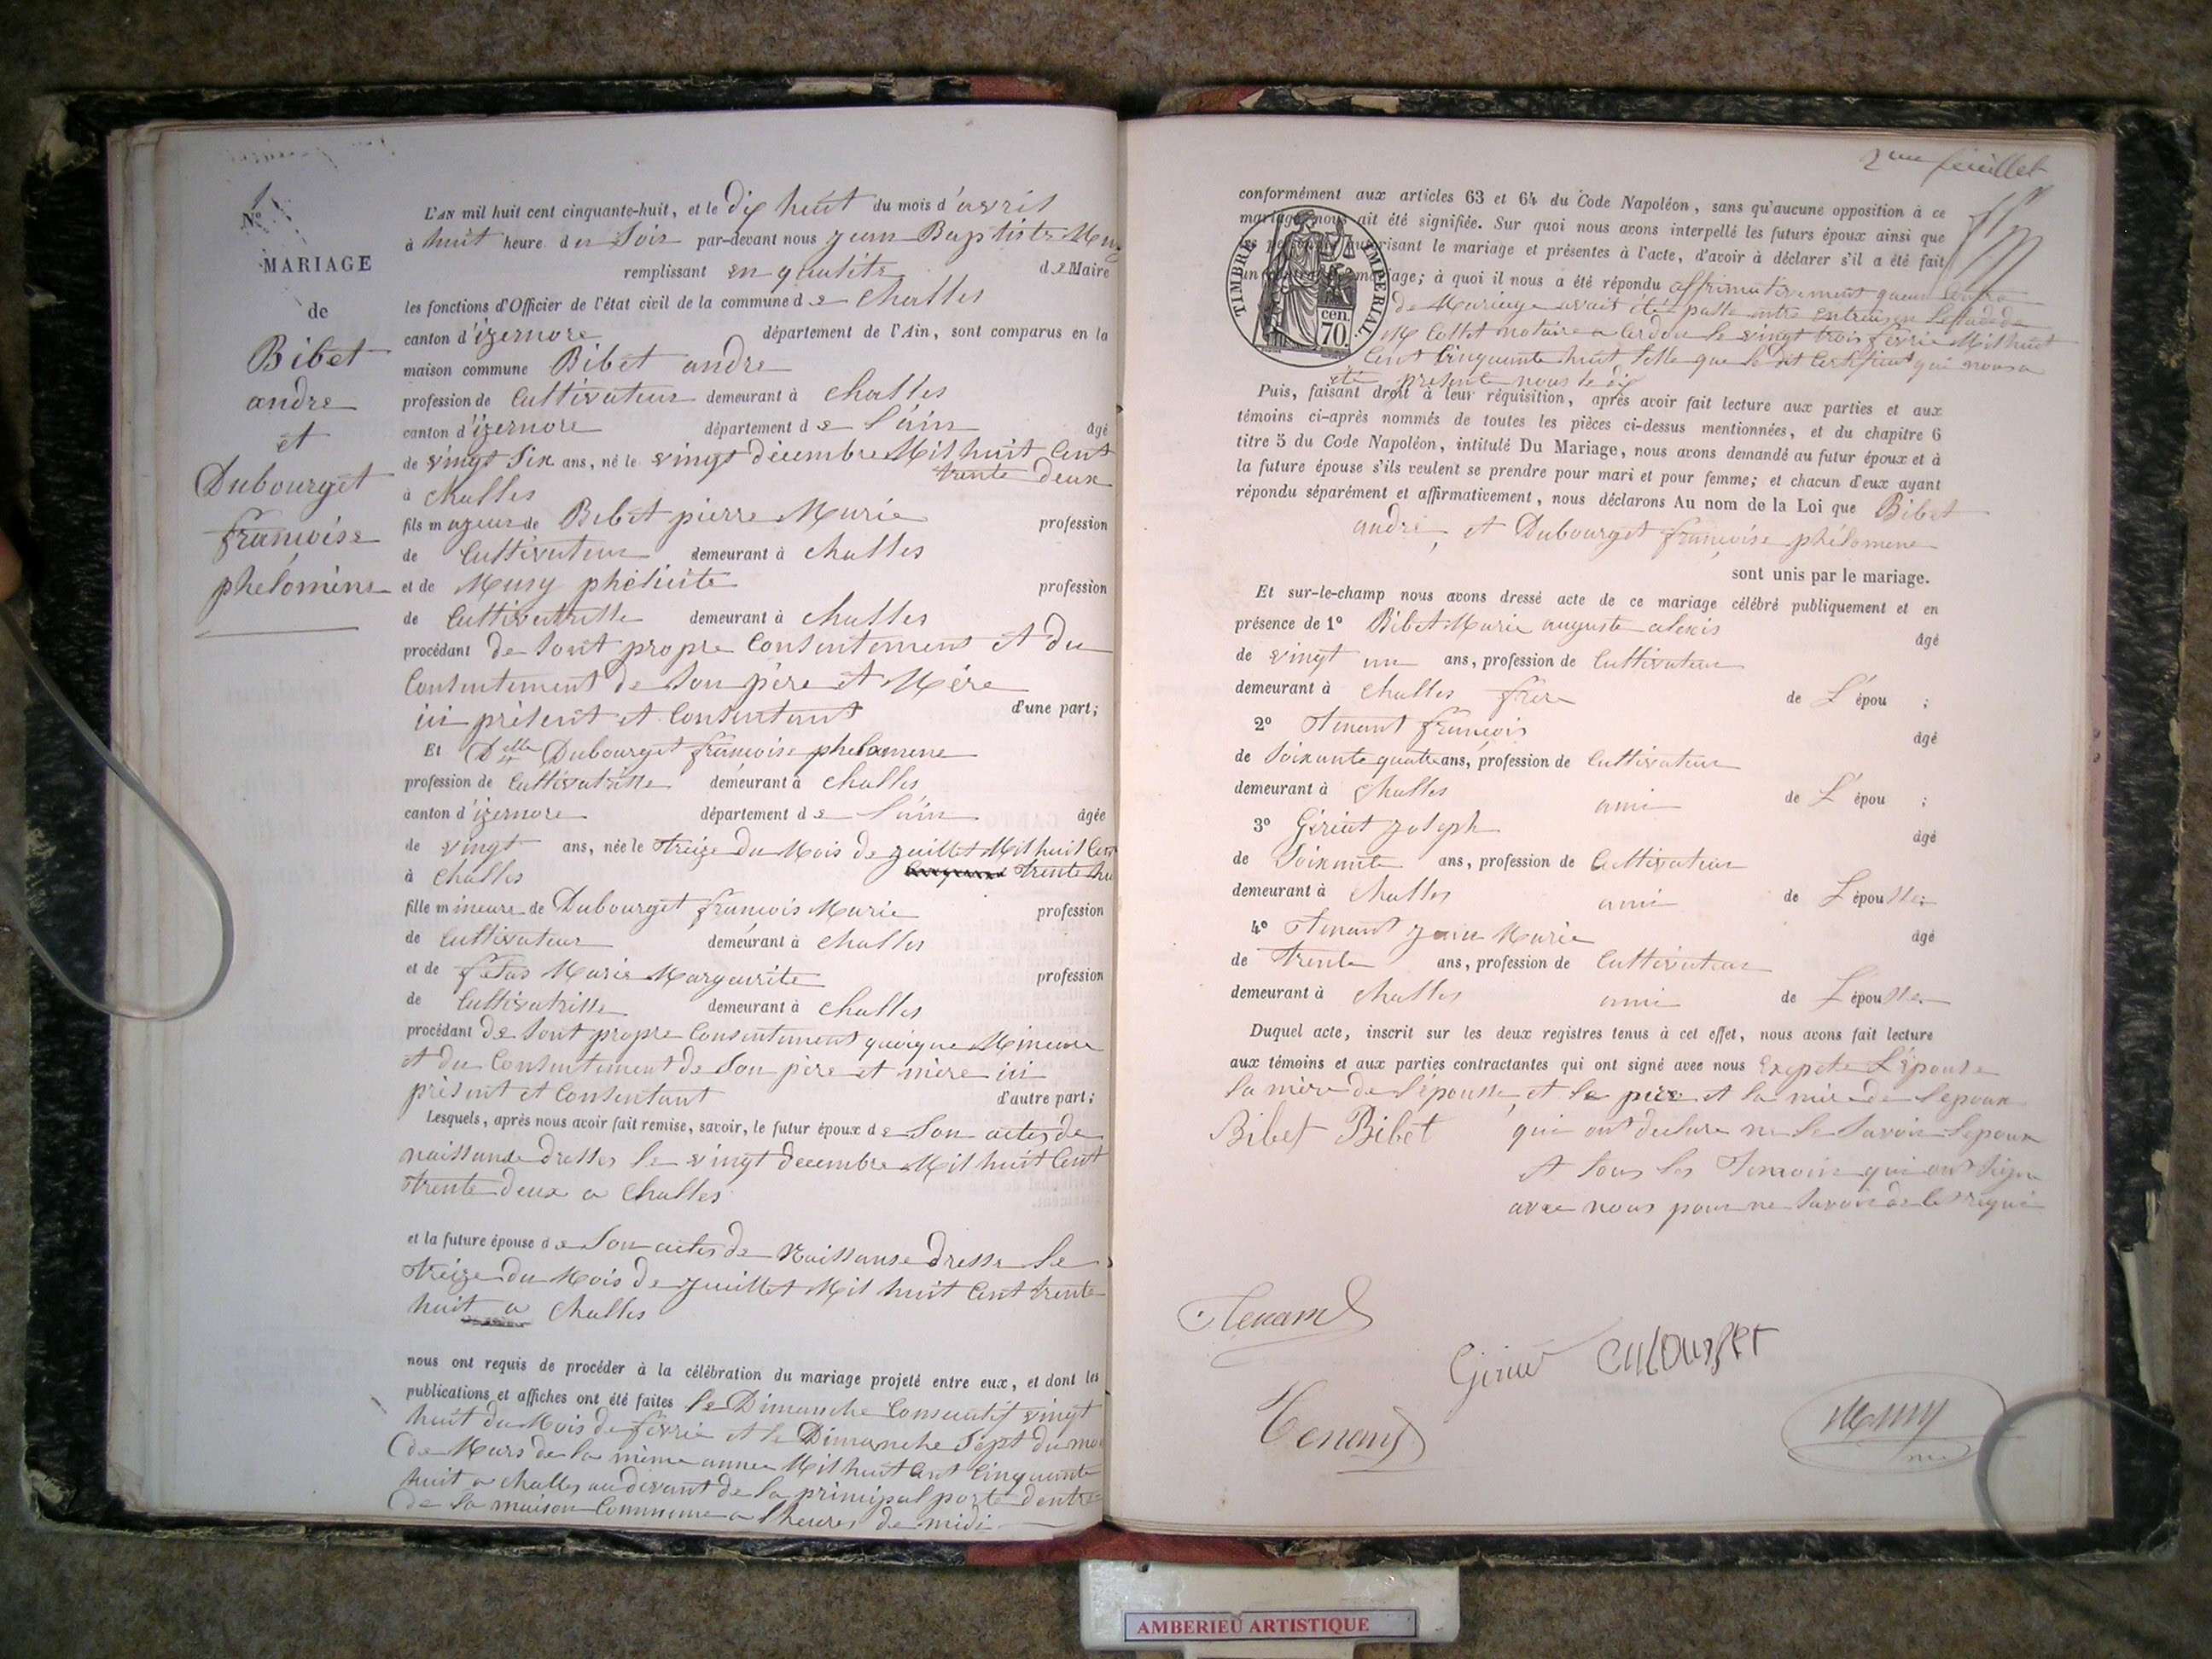 N° 1
MARIAGE
de
Bibet
andre
et
Dubourget
françoise
phelomène
L'AN mil huit cent cinquante-huit, et le dix huit du mois d'avril
à huit heure du Soir par-devant nous jean Baptiste
remplissant en qualité de Maire
les fonctions d'Officier de l'état civil de la commune de Challes
canton d'izernore département de l'Ain, sont comparus en la
maison commune Bibet andre
profession de Cultivateur demeurant à challes
canton d'izernore département de l'ain âgé
de vingt Six ans, né le vingt décembre Mil huit Cent
trente deux
à challes
fils mageur de Bibet pierre Marie profession
de Cultivateur demeurant à challes
et de Musy phélicité profession
de Cultivatrisse demeurant à challes
procédant de Sont propre Consentement et du
Consentement de Son père et Mère
ici présent et Consentant d'une part;
Et Delle Dubourget françoise phelomene
profession de Cultivatrisse demeurant à challes
canton d'izernore département de l'ain âgée
de vingt ans, née le treize du Mois de juillet Mil huit Cent
trente hu
à challes
fille mineure de Dubourget françois Marie profession
de Cultivateur demeurant à challes
et de fétas Marie Margeurite profession
de Cultivatrisse demeurant à challes
procédant de Sont propre Consentement quoique Mineure
et du Consentement de Son père et mère ici
présent et Consentant d'autre part;
Lesquels, après nous avoir fait remise, savoir, le futur époux de Son actes de
naissance dresses le vingt decembre Mil huit Cent
trente deux a Challes
et la future épouse de Son actes de Naissanse dresse le
treize du Mois de juillet Mil huit Cent trente
huit a Challes
nous ont requis de procéder à la célébration du mariage projeté entre eux, et dont les
publications et affiches ont été faites le Dimanche Consecutif vingt
huit du Mois de fevrie et le Dimanche Sept du moi
de Mars de la même annee Mil huit Cent Cinquante
huit a challes au devant de la principal porte dentre
de la maison Commune a lheures de midi
2me feuillet
conformément aux articles 63 et 64 du Code Napoléon, sans qu'aucune opposition à ce
mariage nous ait été signifiée. Sur quoi nous avons interpellé les futurs époux ainsi que
les personnes autorisant le mariage et présentes à l'acte, d'avoir à déclarer s'il a été fait
un contrat de mariage; à quoi il nous a été répondu affirmativement queun Contra
de Mariage avait été passe entre letude de
Me Collet notaire a Cerdon le vingt trois fevrie Mil huit
Cent Cinquante huit telle que le dit Certificat qui nous a
été presente nous le dit
TIMBRE IMPERIAL
70 cen.
Puis, faisant droit à leur réquisition, après avoir fait lecture aux parties et aux
témoins ci-après nommés de toutes les pièces ci-dessus mentionnées, et du chapitre 6
titre 5 du Code Napoléon, intitulé Du Mariage, nous avons demandé au futur époux et à
la future épouse s'ils veulent se prendre pour mari et pour femme; et chacun d'eux ayant
répondu séparément et affirmativement, nous déclarons Au nom de la Loi que Bibet
andré, et Dubourget françoise phélomene
sont unis par le mariage.
Et sur-le-champ nous avons dressé acte de ce mariage célébré publiquement et en
présence de 1° Bibet Marie auguste alexis âgé
de vingt un ans, profession de Cultivateur
demeurant à challes frere de L'épou ;
2° Tenant françois âgé
de Soixante quatre ans, profession de Cultivateur
demeurant à challes ami de L'épou ;
3° Giriat joseph âgé
de Soixante ans, profession de Cultivateur
demeurant à challes ami de L'épousse;
4° Tenant jean Marie âgé
de trente ans, profession de Cultivateur
demeurant à challes ami de L'épousse.
Duquel acte, inscrit sur les deux registres tenus à cet effet, nous avons fait lecture
aux témoins et aux parties contractantes qui ont signé avec nous Exepete L'épouse
la mère de l'épousse, et le père et la mère de lepoux
Bibet Bibet qui ont declare ne le Savoir lepoux
et tous les Temoin qui ont Signe
avec nous pour ne Savoir de le requi
Tenand
Giriat
Tenant
Musy
AMBERIEU ARTISTIQUE